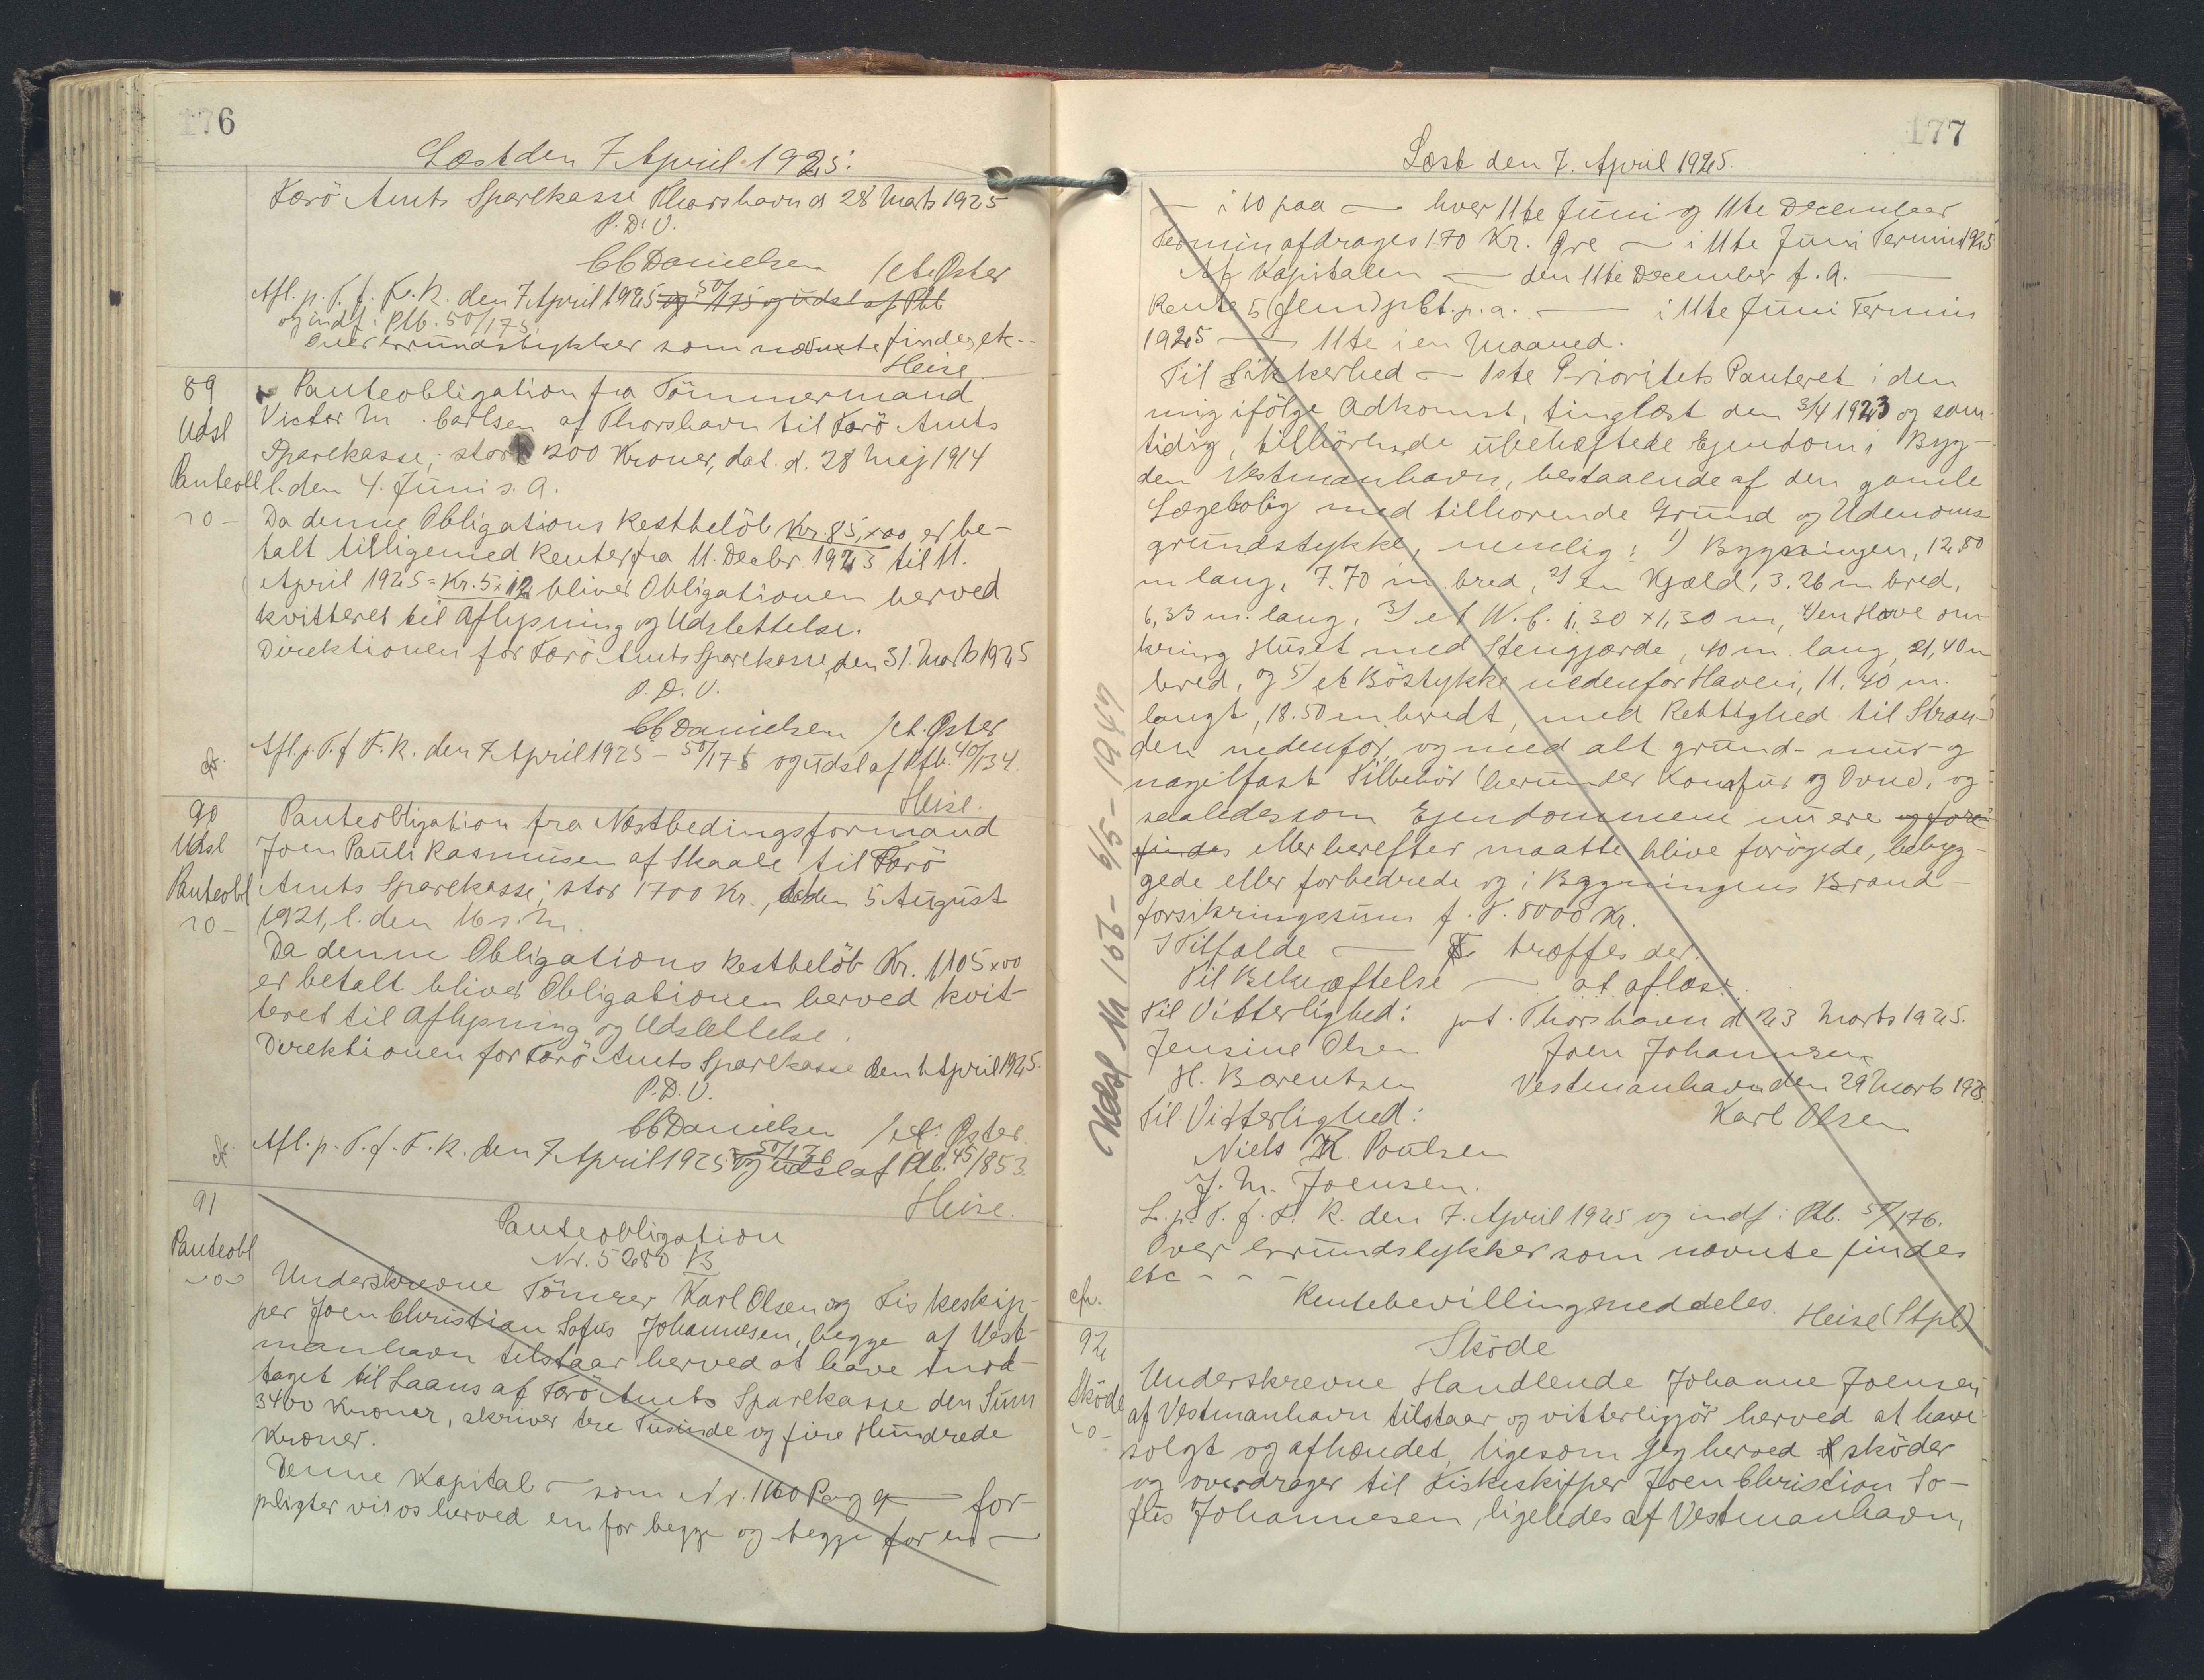 176
Læst den 7 April 1925.
Færö Amts Sparekasse Thorshavn d 28 Marts 1925
P. D. V.
CC Danielsen / Chr. Øster
Afl. p. T. f. F. R. den 7 April 1925 og 50/175 og udsl af Ptb
og indf. i Ptb. 50/175.
Over Grundstykker som nævnte findes etc--
Heise
89
Udsl
Panteobl
Panteobligation fra Tömmermand
Victor M. Carlsen af Thorshavn til Færö Amts
Sparekasse, stor 200 Kroner, dat. d. 28 Maj 1914
l. den 4. Juni s. A.
Da denne Obligations Restbelöb Kr. 85,x00 er be-
talt tilligemed Renter fra 11. Decbr. 1923 til 11.
April 1925 = Kr. 5x12 bliver Obligationen herved
kvitteret til Aflysning og Udslettelse.
Direktionen for Færö Amts Sparekasse, den 31. Marts 1925
P. D. V.
CC Danielsen / Chr. Øster
Afl. p. T. f. F. R. den 7 April 1925 - 50/176 og udsl af Ptb. 40/134.
Heise.
90
Udsl
Panteobl
Panteobligation fra Næstbedingsformand
Joen Pauli Rasmusen af Skaale til Færö
Amts Sparekasse, stor 1700 Kr., den 5 August
1921, l. den 16 s. M.
Da denne Obligations Restbelöb Kr. 1105x00
er betalt bliver Obligationen herved kvit-
teret til Aflysning og Udslettelse.
Direktionen for Færö Amts Sparekasse den 1 April 1925.
P. D. V.
CC Danielsen / Chr. Øster.
Afl. p. T. f. F. R. den 7 April 1925 50/176 og udsl af Ptb. 45/853.
Heise.
91
Panteobl
Panteobligation
Nr. 5280 B
Underskrevne Tömrer Karl Olsen og Fiskeskip-
per Joen Christian Sofus Johannesen, begge af Vest-
manhavn tilstaar herved at have mod-
taget til Laans af Færö Amts Sparekasse den Sum
3400 Kroner, skriver tre Tusinde og fire Hundrede
Kroner.
Denne Kapital — som Nr. 1160 Pag 9 — for-
pligter vi os herved en for begge og begge for en —
177
Læst den 7. April 1925.
— i 10 paa — hver 11te Juni og 11te December
Termin afdrages 170 Kr. Øre — i 11te Juni Termin 1925
Af Kapitalen — den 11te December f. A. —
Rente 5 (fem) pCt. p. a. — i 11te Juni Termin
1925 — 11te i en Maaned.
Til Sikkerhed — 1ste Prioritets Panteret i den
mig ifölge Adkomst, tinglæst den 3/4 1923 og sam-
tidig, tilhörende ubehæftede Ejendom i Byg-
den Vestmanhavn, bestaaende af den gamle
Lægebolig med tilhorende Grund og Udenoms-
grundstykke, nemlig: 1) Bygningen, 12,80
m lang, 7.70 m. bred, 2) en Kjæld, 3.26 m bred,
6,33 m. lang, 3) et W. C. 1.30 x 1,30 m, 4) en Have om-
kring Huset med Stengjærde, 40 m. lang, 21,40 m
bred, og 5) et Böstykke nedenfor Haven, 11.40 m.
langt, 18.50 m bredt, med Rettighed til Stran-
den nedenfor, og med alt grund- mur- og
nagelfast Tilbehör (herunder Komfur og Ovne), og
saaledes som Ejendommene nu ere og fore-
findes eller herefter maatte blive forögede, bebyg-
gede eller forbedrede og i Bygningens Brand-
forsikringssum f. T. 8000 Kr.
I Tilfælde — træffes der.
Til Bekræftelse — at aflæse.
Til Vitterlighed: pt. Thorshavn d 23 Marts 1925.
Jensine Olsen Joen Johannesen
H. Bærentsen Vestmanhavn den 29 Marts 1925.
Til Vitterlighed: Karl Olsen
Niels K. Poulsen
J. M. Joensen.
L. p. T. f. F. R. den 7. April 1925 og indf. i Ptb. 50/176.
Over Grundstykker som nævnte findes
etc - - -
Rentebevilling meddeles. Heise (Stpl)
cfr.
Udsl Nr 166 - 6/5 - 1947
92
Sköde
Sköde
Underskrevne Handlende Johanne Joensen
af Vestmanhavn tilstaar og vitterligjör herved at have
solgt og afhændet, ligesom jeg herved sköder
og overdrager til Fiskeskipper Joen Christian So-
fus Johannesen, ligeledes af Vestmanhavn,